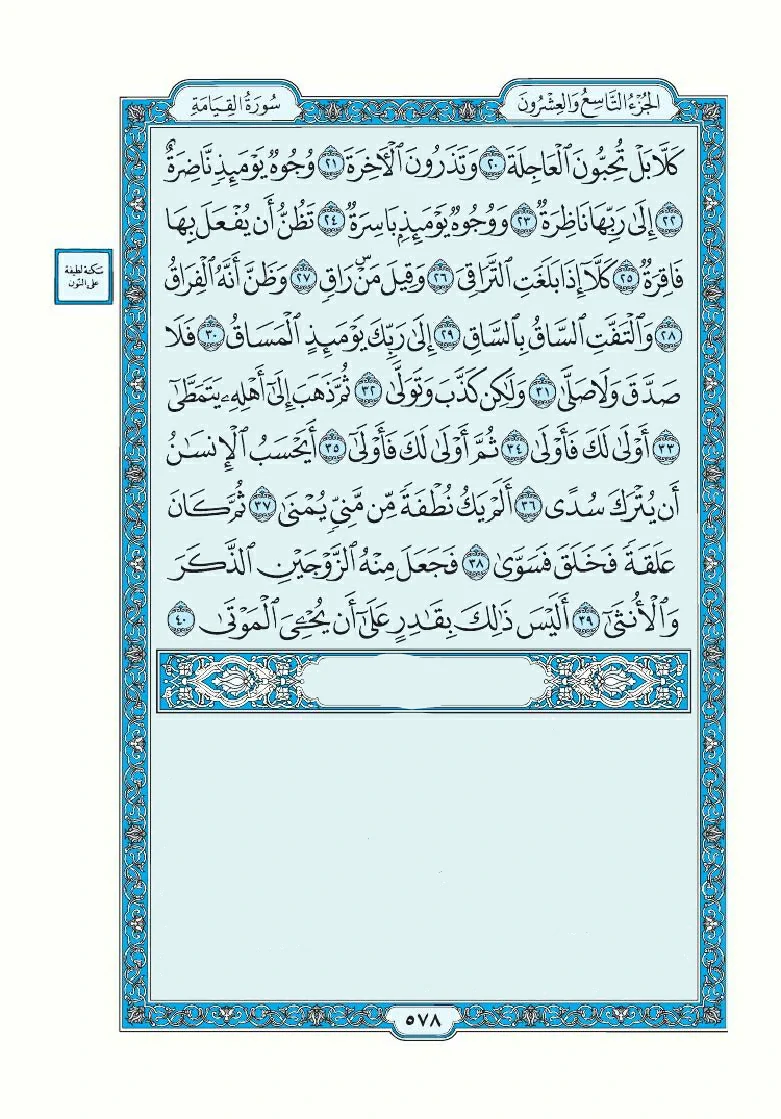 الجُزْءُ التَّاسِعُ وَالعِشْرُونَ
سُورَةُ القِيَامَةِ
كَلَّا بَلْ تُحِبُّونَ ٱلْعَاجِلَةَ ٢٠ وَتَذَرُونَ ٱلْأَخِرَةَ ٢١ وُجُوهٌ يَوْمَئِذٍ نَّاضِرَةٌ
٢٢ إِلَىٰ رَبِّهَا نَاظِرَةٌ ٢٣ وَوُجُوهٌ يَوْمَئِذٍۭ بَاسِرَةٌ ٢٤ تَظُنُّ أَن يُفْعَلَ بِهَا
فَاقِرَةٌ ٢٥ كَلَّآ إِذَا بَلَغَتِ ٱلتَّرَاقِىَ ٢٦ وَقِيلَ مَنْۜ رَاقٍ ٢٧ وَظَنَّ أَنَّهُ ٱلْفِرَاقُ
٢٨ وَٱلْتَفَّتِ ٱلسَّاقُ بِٱلسَّاقِ ٢٩ إِلَىٰ رَبِّكَ يَوْمَئِذٍ ٱلْمَسَاقُ ٣٠ فَلَا
صَدَّقَ وَلَا صَلَّىٰ ٣١ وَلَٰكِن كَذَّبَ وَتَوَلَّىٰ ٣٢ ثُمَّ ذَهَبَ إِلَىٰٓ أَهْلِهِۦ يَتَمَطَّىٰٓ
٣٣ أَوْلَىٰ لَكَ فَأَوْلَىٰ ٣٤ ثُمَّ أَوْلَىٰ لَكَ فَأَوْلَىٰٓ ٣٥ أَيَحْسَبُ ٱلْإِنسَٰنُ
أَن يُتْرَكَ سُدًى ٣٦ أَلَمْ يَكُ نُطْفَةً مِّن مَّنِىٍّ يُمْنَىٰ ٣٧ ثُمَّ كَانَ
عَلَقَةً فَخَلَقَ فَسَوَّىٰ ٣٨ فَجَعَلَ مِنْهُ ٱلزَّوْجَيْنِ ٱلذَّكَرَ
وَٱلْأُنثَىٰٓ ٣٩ أَلَيْسَ ذَٰلِكَ بِقَٰدِرٍ عَلَىٰٓ أَن يُحْۦِىَ ٱلْمَوْتَىٰ ٤٠
سكتة لطيفة
على النون
٥٧٨